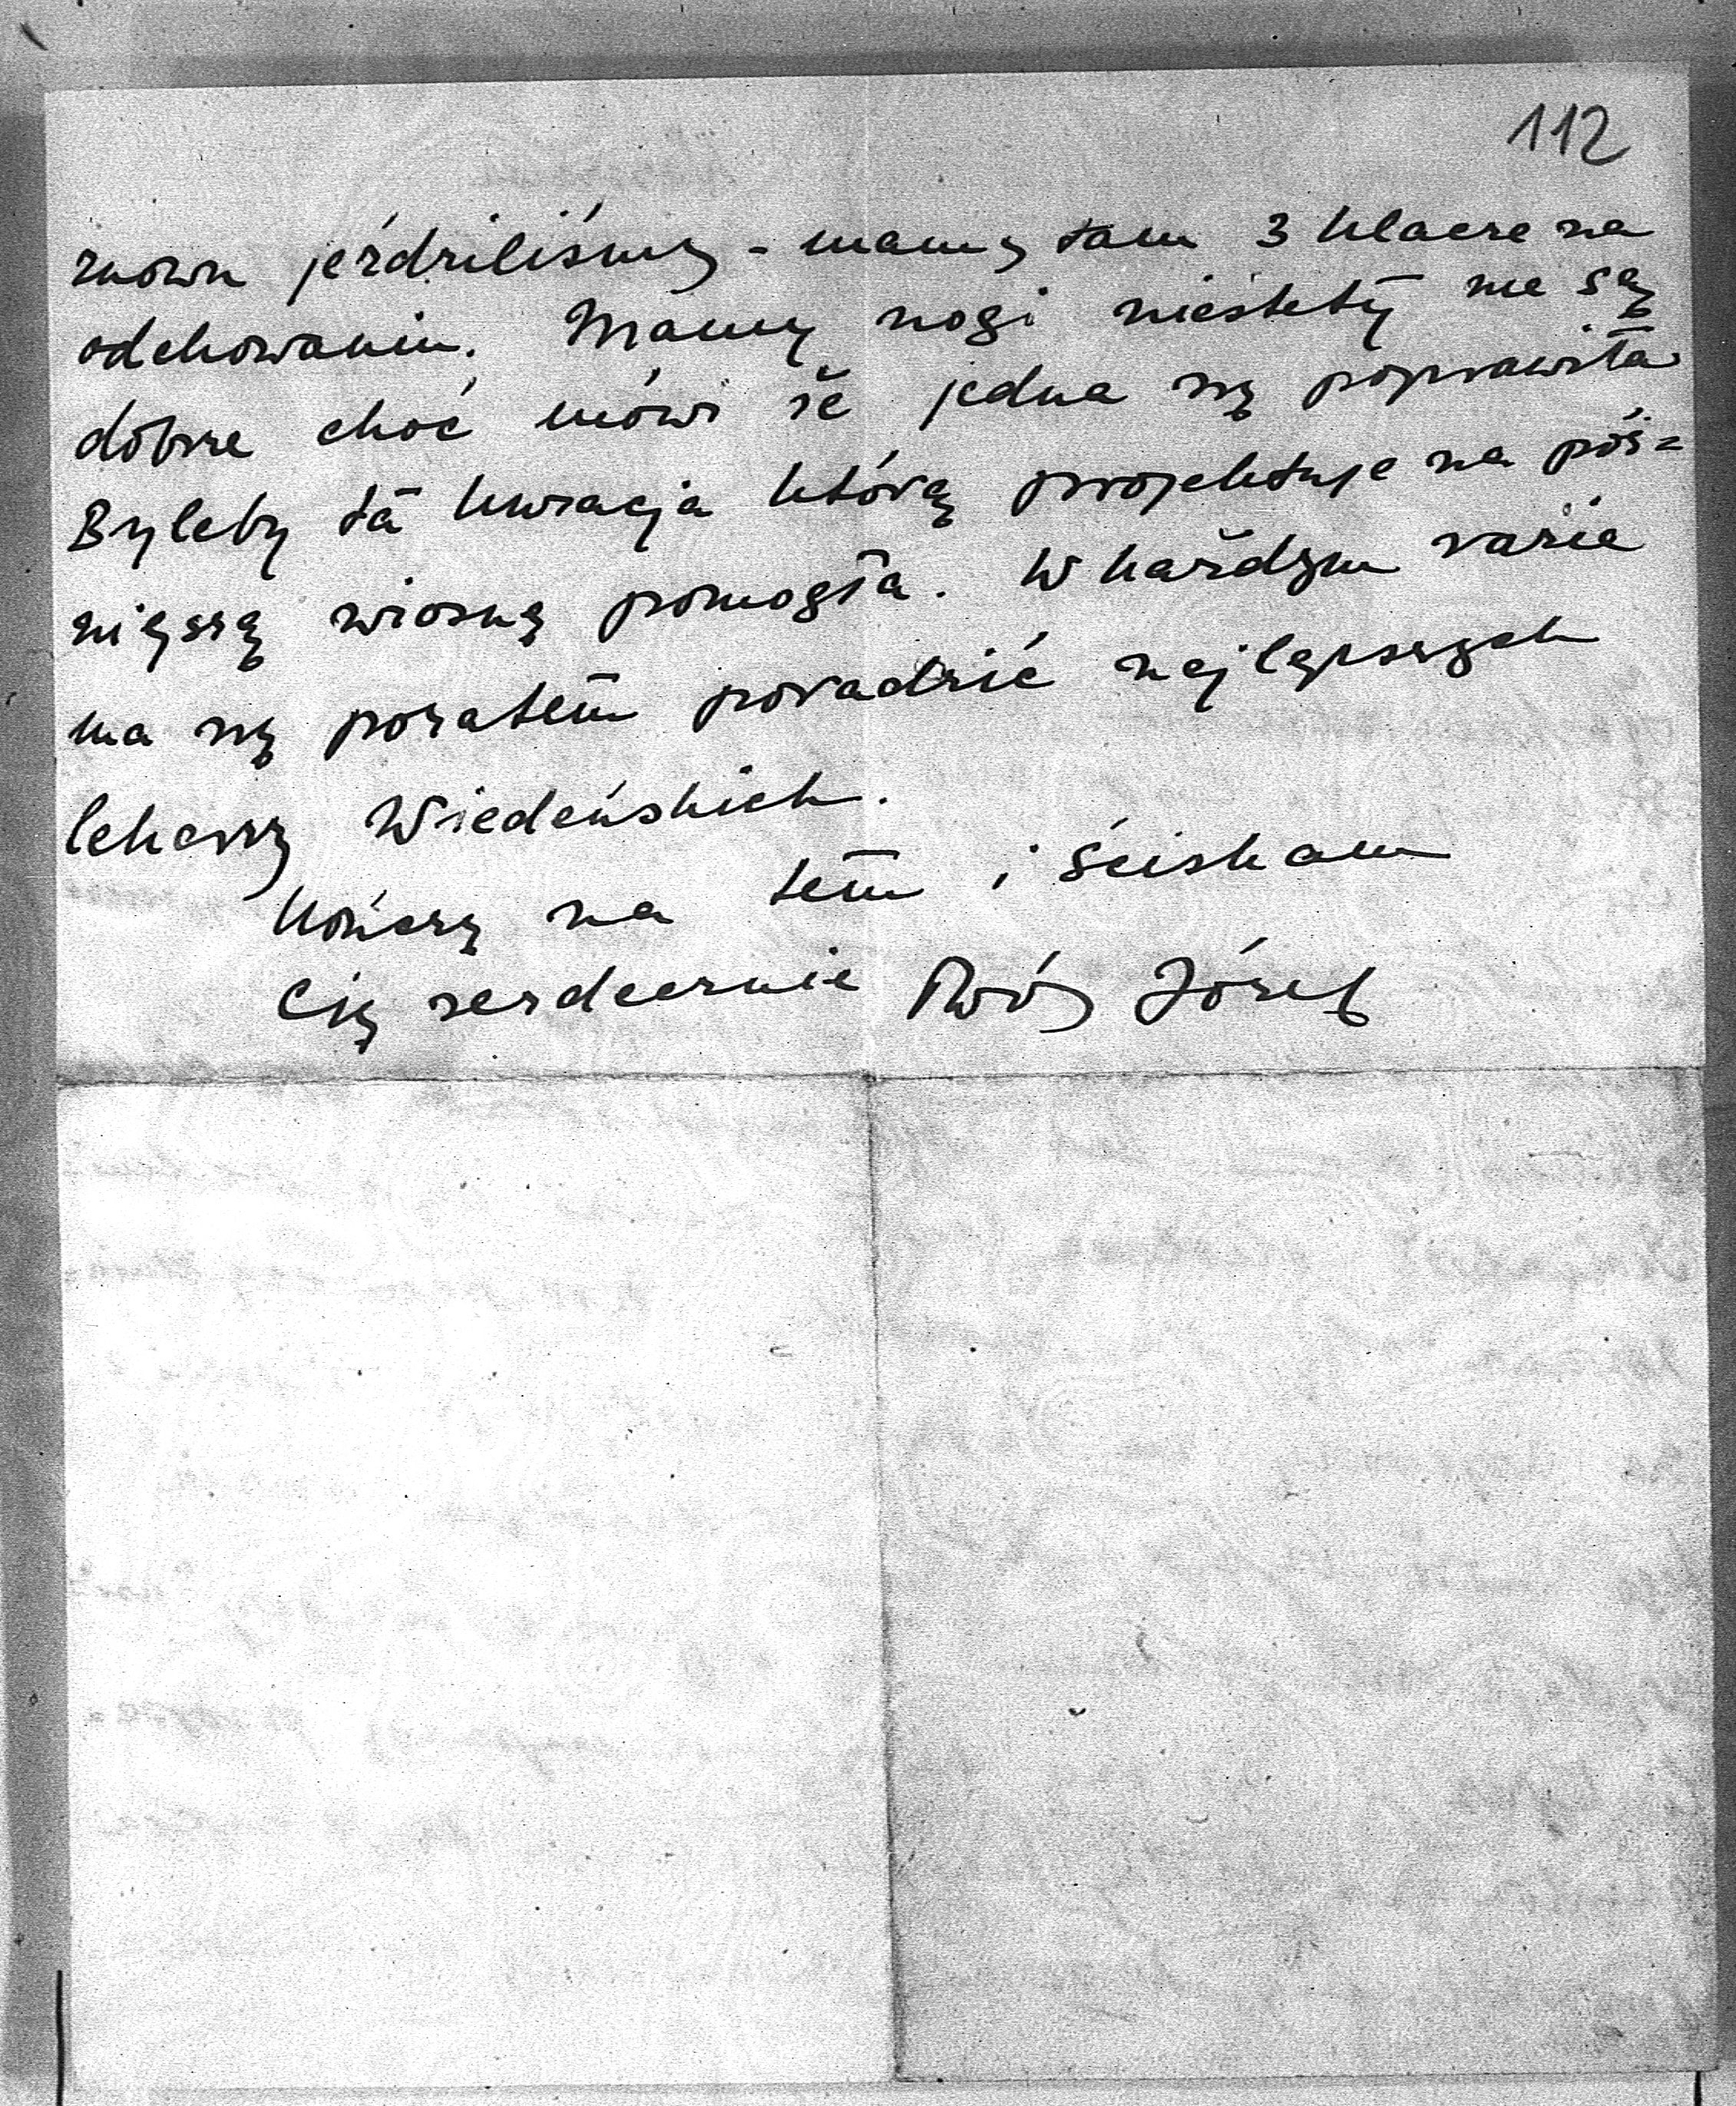 112
znowu jeździliśmy - mamy tam 3 klacze na
odchowaniu. Mamy nogi niestety nie są
dobrze choć mówi że jedna się poprawiła
Byleby ta kuracja którą projektuje na póź=
niejszą wiosnę pomogła. W każdym razie
ma się pozatem poradzić najlepszych
lekarzy Wiedeńskich.
Kończę na tem i ściskam
Cię serdecznie Twój Józef